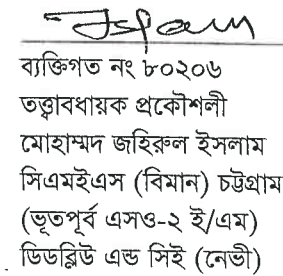 ব্যক্তিগত নং ৮০২০৬
তত্ত্বাবধায়ক প্রকৌশলী
মোহাম্মদ জহিরুল ইসলাম
সিএমইএস (বিমান) চট্টগ্রাম
(ভূতপূর্ব এসও-২ ই/এম)
ডিডব্লিউ এন্ড সিই (নেভী)